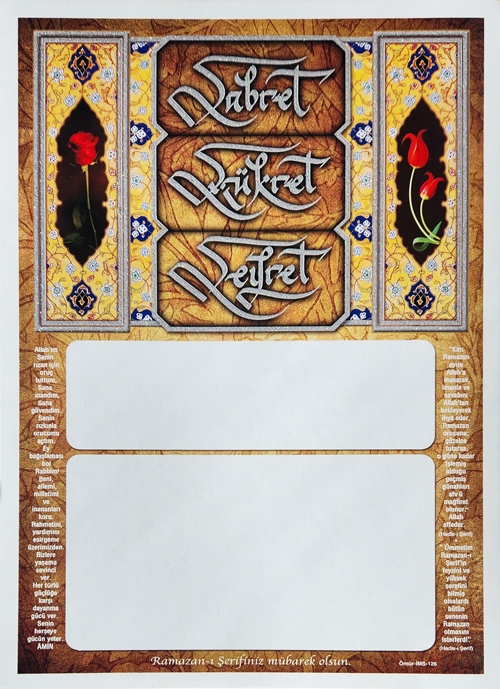 Sabret
Şükret
Seyret
Allah'ım
Senin
rızan için
oruç
tuttum,
Sana
inandım,
Sana
güvendim.
Senin
rızkınla
orucumu
açtım.
Ey
bağışlaması
bol
Rabbim!
Beni,
ailemi,
milletimi
ve
inananları
koru.
Rahmetini,
yardımını
esirgeme
üzerimizden.
Bizlere
yaşama
sevinci
ver.
Her türlü
güçlüğe
karşı
dayanma
gücü ver.
Senin
herşeye
gücün yeter.
ÂMİN
"Kim
Ramazan
ayını
Allah'a
inanarak,
imanla ve
sevabını
Allah'tan
bekleyerek
ihya eder,
Ramazan
orucunu
güzelce
tutarsa,
o güne kadar
işlemiş
olduğu
geçmiş
günahları
afv ü
mağfiret
olunur."
Allah
affeder.
(Hadis-i Şerif)
*
"Ümmetim
Ramazan-ı
Şerif'in
feyzini ve
yüksek
şerefini
bilmiş
olsalardı
bütün
senenin
Ramazan
olmasını
isterlerdi."
(Hadis-i Şerif)
Ramazan-ı Şerifiniz mübarek olsun.
Ömür-İMS-126